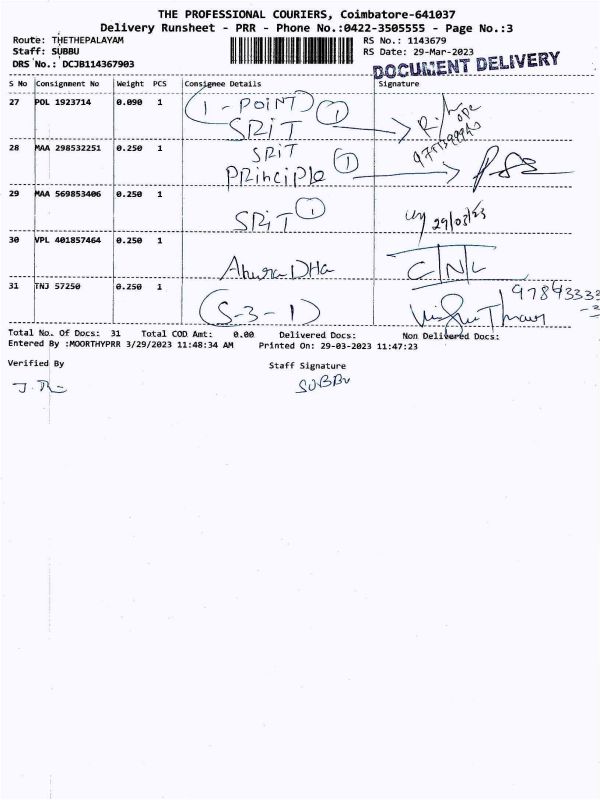 THE PROFESSIONAL COURIERS, Coimbatore-641037
Delivery Runsheet - PRR - Phone No.:0422-3505555 - Page No.:3
Route: THETHEPALAYAM
RS No.: 1143679
Staff: SUBBU
RS Date: 29-Mar-2023
DRS No.: DCJB114367903
DOCUMENT DELIVERY
S No Consignment No Weight PCS Consignee Details Signature
27 POL 1923714 0.090 1 (1-POINT) 1
SRiT
28 MAA 298532251 0.250 1 SRIT
PRinciPle 1
29 MAA 569853406 0.250 1 SRiT 1 29/03/23
30 VPL 401857464 0.250 1 AnuraDHa C/N/L
31 TNJ 57250 0.250 1 (S-3-1)
Total No. Of Docs: 31 Total COD Amt: 0.00 Delivered Docs: Non Delivered Docs:
Entered By :MOORTHYPRR 3/29/2023 11:48:34 AM Printed On: 29-03-2023 11:47:23
Verified By Staff Signature
SUBBU